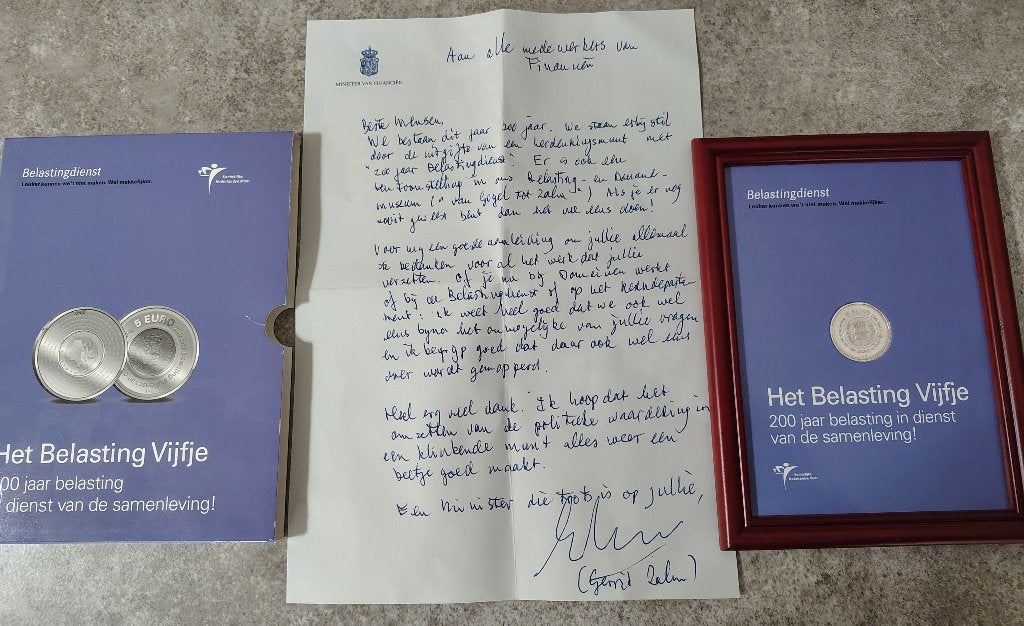 Belastingdienst
Leuker kunnen we 't niet maken. Wel makkelijker.
Koninklijke
Nederlandse Munt
5 EURO
Het Belasting Vijfje
00 jaar belasting
dienst van de samenleving!
MINISTER VAN FINANCIËN
Aan alle medewerkers van
Financiën
Beste mensen,
We bestaan dit jaar 200 jaar. We staan erbij stil
door de uitgifte van een herdenkingsmunt met
"200 jaar Belastingdienst". Er is ook een
tentoonstelling in ons Belasting- en Douane-
museum ("van Gogel tot Zalm"). Als je er nog
nooit geweest bent dan het wel eens doen!
Voor mij een goede aanleiding om jullie allemaal
te bedanken voor al het werk dat jullie
verzetten. Of je nu bij Domeinen werkt
of bij de Belastingdienst of op het kerndeparte-
ment: ik weet heel goed dat we ook wel
eens bijna het onmogelijke van jullie vragen
en ik begrijp goed dat daar ook wel eens
over wordt gemopperd.
Heel erg veel dank. Ik hoop dat het
omzetten van de politieke waardering in
een klinkende munt alles weer een
beetje goed maakt.
Een Minister die trots is op jullie,
(Gerrit Zalm)
Belastingdienst
Leuker kunnen we't niet maken. Wel makkelijker.
Het Belasting Vijfje
200 jaar belasting in dienst
van de samenleving!
Koninklijke
Nederlandse Munt